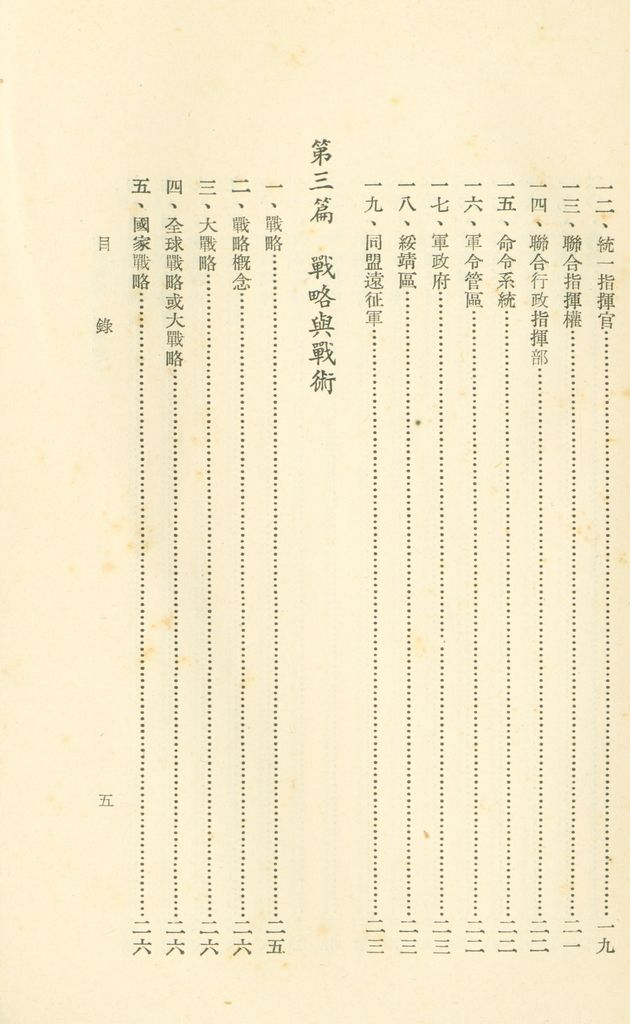 一二、統一指揮官……………………一九
一三、聯合指揮權……………………二一
一四、聯合行政指揮部……………………二二
一五、命令系統……………………二二
一六、軍令管區……………………二二
一七、軍政府……………………二三
一八、綏靖區……………………二三
一九、同盟遠征軍……………………二三
第三篇 戰略與戰術
一、戰略……………………二五
二、戰略概念……………………二六
三、大戰略……………………二六
四、全球戰略或大戰略……………………二六
五、國家戰略……………………二六
目錄
五